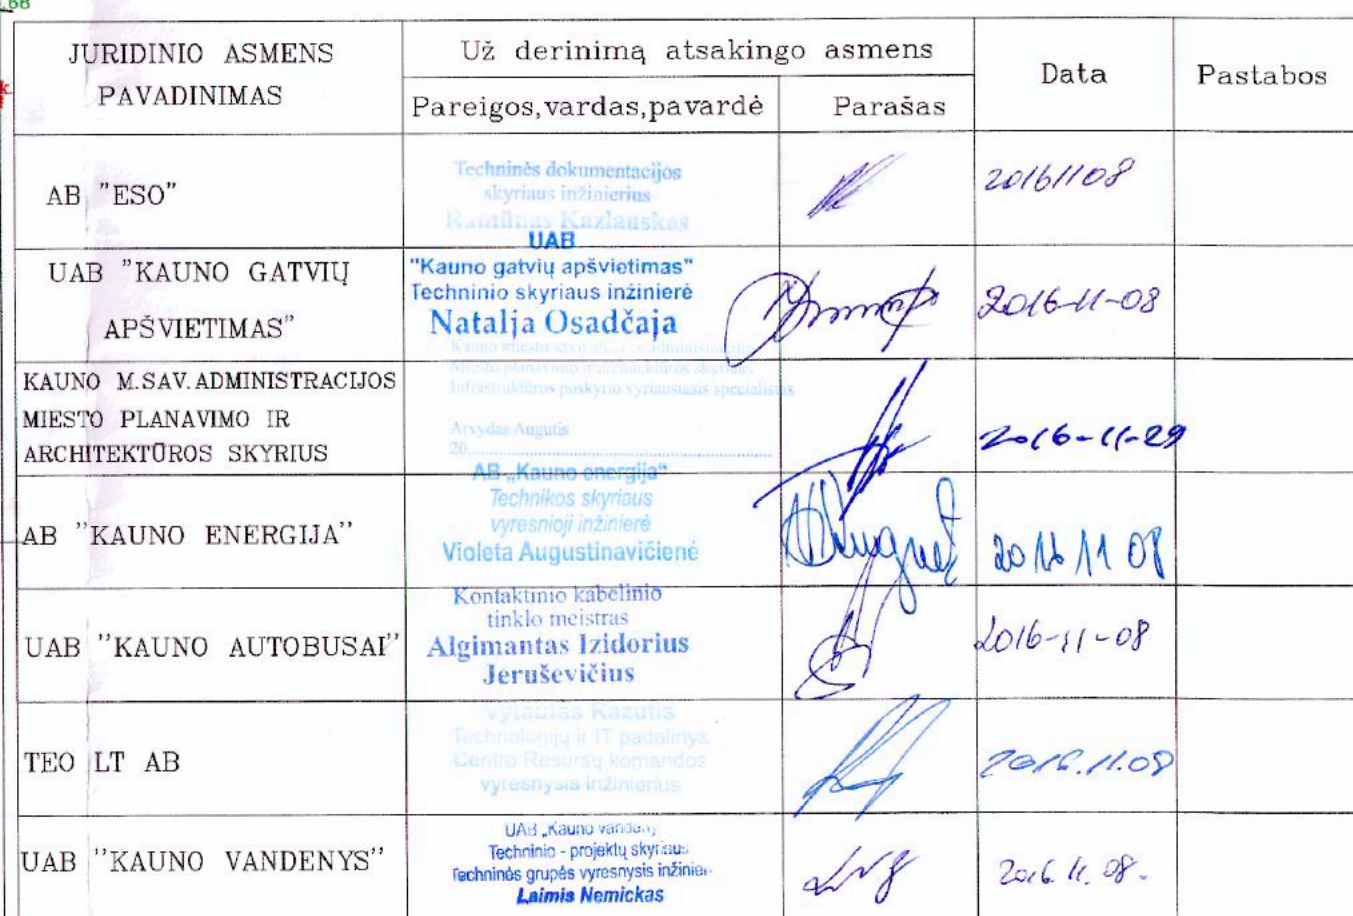 JURIDINIO ASMENS
PAVADINIMAS
Už derinimą atsakingo asmens
Pareigos,vardas,pavardė
Parašas
Data
Pastabos
AB "ESO"
Techninės dokumentacijos
skyriaus inžinierius
Ramūnas Kazlauskas
20161108
UAB "KAUNO GATVIŲ
APŠVIETIMAS"
UAB
"Kauno gatvių apšvietimas"
Techninio skyriaus inžinierė
Natalja Osadčaja
2016-11-08
KAUNO M.SAV.ADMINISTRACIJOS
MIESTO PLANAVIMO IR
ARCHITEKTŪROS SKYRIUS
Kauno miesto
Miesto planavimo ir architektūros skyriaus
Infrastruktūros poskyrio vyriausiasis specialistas
Arvydas Augutis
20
2016-11-29
AB "KAUNO ENERGIJA"
AB „Kauno energija"
Technikos skyriaus
vyresnioji inžinierė
Violeta Augustinavičienė
2016 11 08
UAB "KAUNO AUTOBUSAI"
Kontaktinio kabelinio
tinklo meistras
Algimantas Izidorius
Jeruševičius
2016-11-08
TEO LT AB
Vytautas Razutis
Technologijų ir IT padalinys
Centro Resursų komandos
vyresnysis inžinierius
2016.11.08
UAB "KAUNO VANDENYS"
UAB „Kauno
Techninio - projektų skyriaus
Techninės grupės vyresnysis
Laimis Nemickas
2016.11.08.